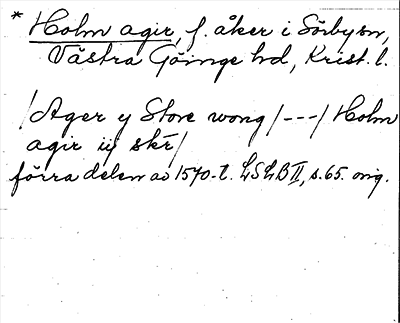 * Holm agir, f. åker i Sörbysn,
Västra Göinge hd, Krist. l.
/Ager y Store wong/---/Holm
agir iij skr̄/
förra delen av 1570-t. LSLB II, s. 65. orig.